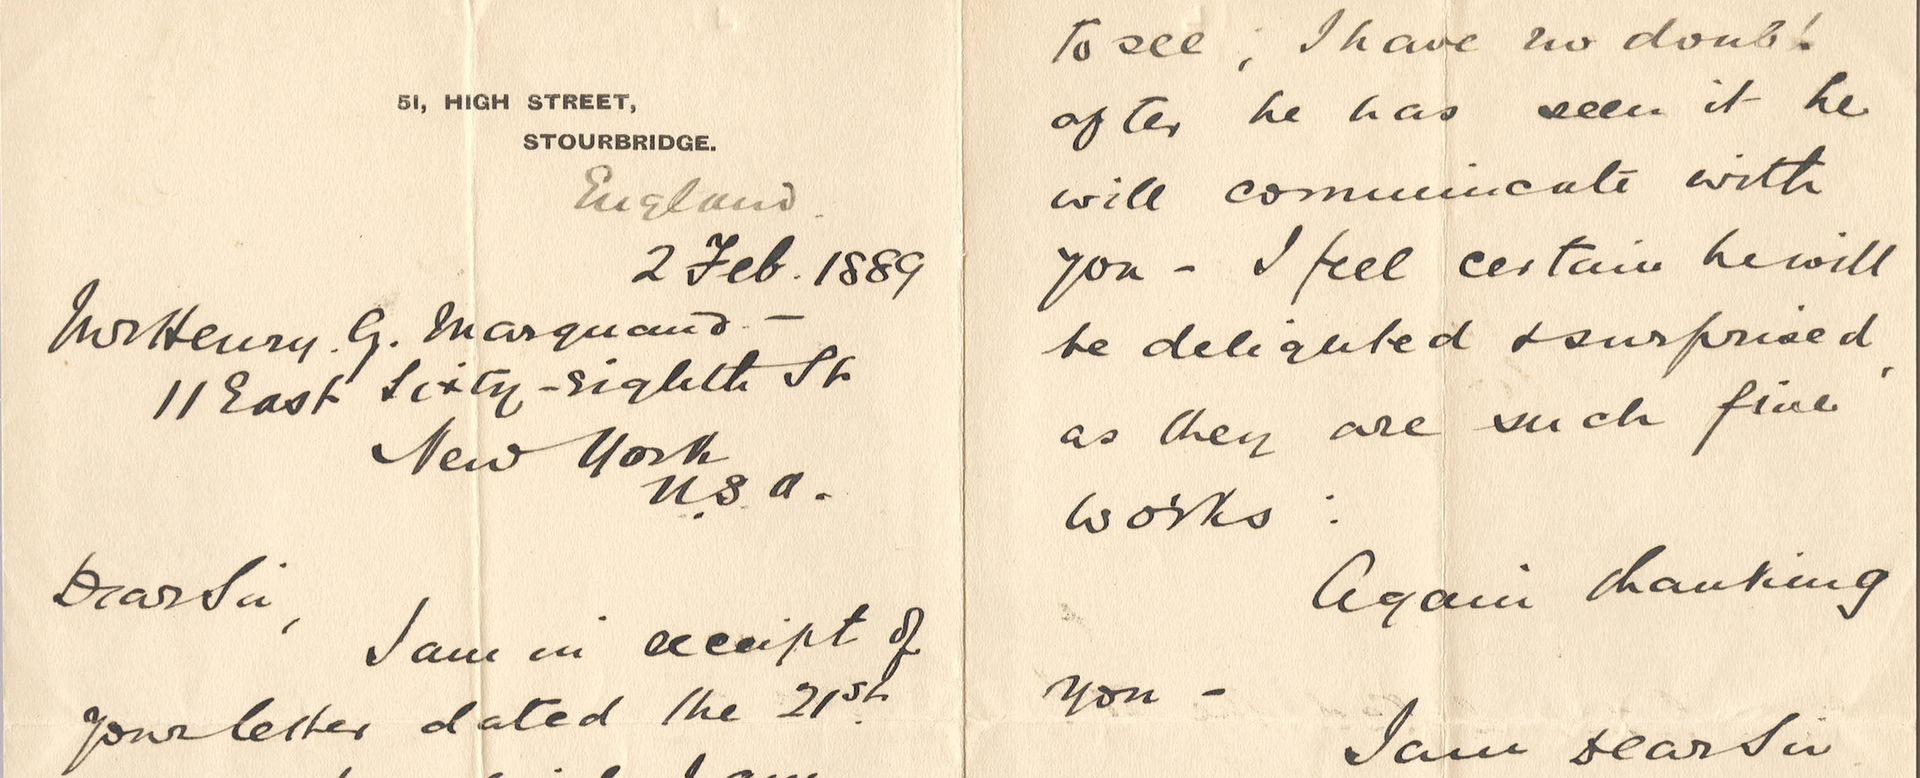 51, HIGH STREET,
STOURBRIDGE.
England.
2 Feb. 1889
Mr Henry. G. Marquand -
11 East Sixty-eighth St
New York
U.S.A.
Dear Sir,
I am in receipt of
your letter dated the 21st
I am
to see ; I have no doubt
after he has seen it he
will communicate with
you - I feel certain he will
be delighted & surprised,
as they are such fine
works :
Again thanking
you -
I am Dear Sir